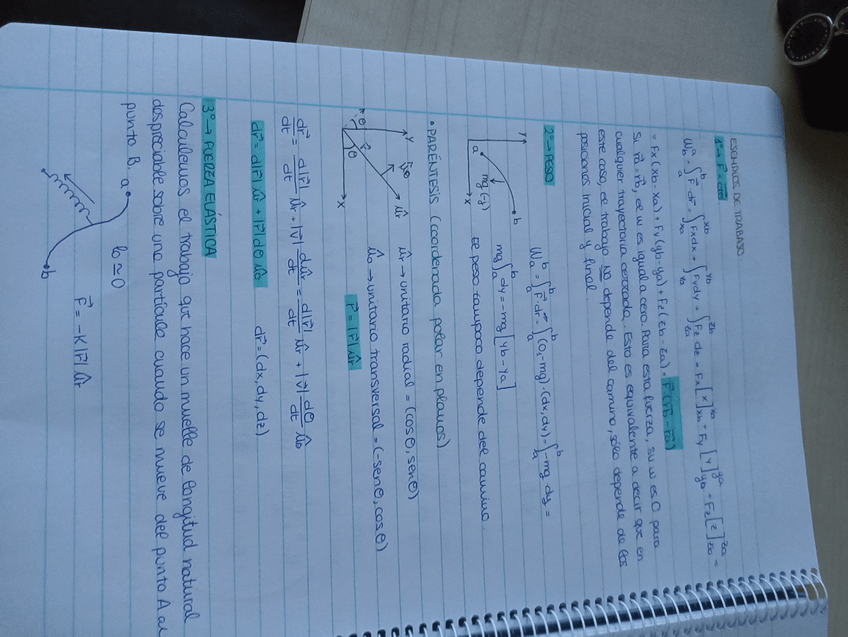 EJEMPLOS DE TRABAJO
1º → F = cte
W_a^b = ∫_a^b F⃗ dr⃗ = ∫_{xa}^{xb} Fxdx + ∫_{ya}^{yb} Fydy + ∫_{za}^{zb} Fz dz = Fx[x] + Fy[y] + Fz[z] =
= Fx(xb-xa) + Fy(yb-ya) + Fz(zb-za) = F⃗(r⃗b-r⃗a)
Si r⃗a = r⃗b, el w es igual a cero. Para esta fuerza, su w es 0 para
cualquier trayectoria cerrada. Esto es equivalente a decir que en
este caso, el trabajo no depende del camino, sólo depende de las
posiciones inicial y final.
2º → PESO
y
a
b
mg(-j)
x
W_a^b = ∫_a^b F⃗ dr⃗ = ∫_a^b (0,-mg)·(dx,dy) = ∫_a^b -mg dy =
mg∫_a^b dy = -mg[yb-ya]
el peso tampoco depende del camino.
• PARÉNTESIS (coordenada polar en planos)
y
x
θ
r⃗
ûr
ûθ
ûr → unitario radial = (cosθ, senθ)
ûθ → unitario transversal = (-senθ, cosθ)
r⃗ = |r⃗| ûr
dr⃗/dt = d|r⃗|/dt ûr + |r⃗| dûr/dt = d|r⃗|/dt ûr + |r⃗| dθ/dt ûθ
dr⃗ = d|r⃗| ûr + |r⃗|dθ ûθ dr⃗ = (dx, dy, dz)
3º → FUERZA ELÁSTICA
Calculemos el trabajo que hace un muelle de longitud natural
despreciable sobre una partícula cuando se mueve del punto A al
punto B.
a
lo ≃ 0
b
F⃗ = -K|r⃗| ûr